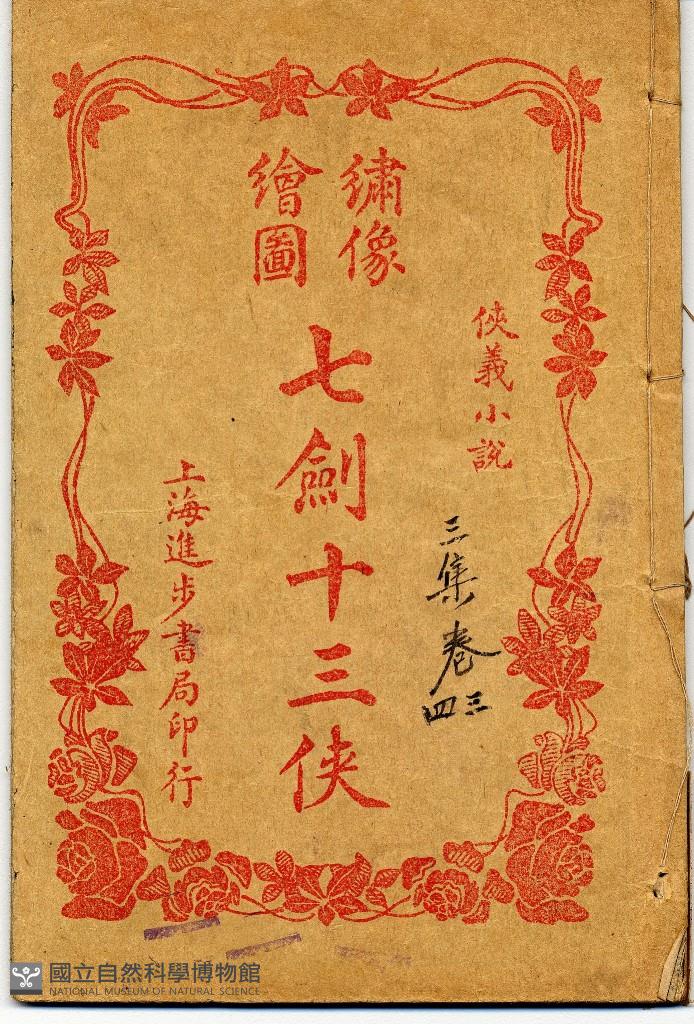 俠義小說
三集卷
三四
繡像
繪圖
七劍十三俠
上海進步書局印行
國立自然科學博物館
NATIONAL MUSEUM OF NATURAL SCIENCE